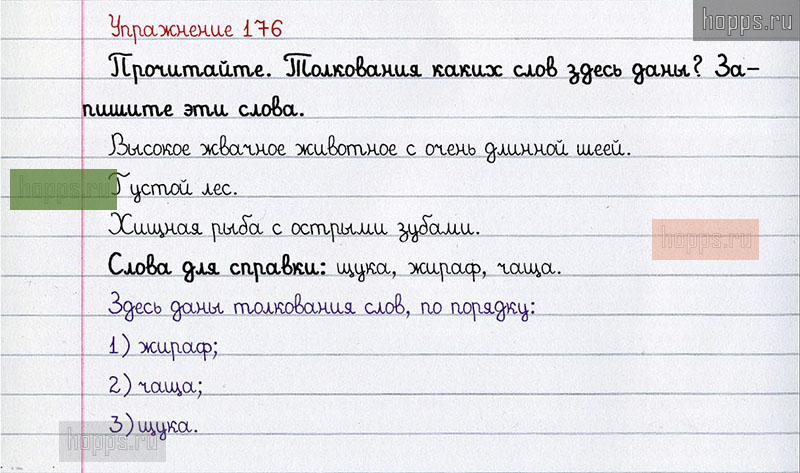 hopps.ru
Упражнение 176
Прочитайте. Толкования каких слов здесь даны? За-
пишите эти слова.
Высокое жвачное животное с очень длинной шеей.
hopps.ru
Густой лес.
Хищная рыба с острыми зубами.
hopps.ru
Слова для справки: щука, жираф, чаща.
Здесь даны толкования слов, по порядку:
1) жираф;
2) чаща;
3) щука.
hopps.ru